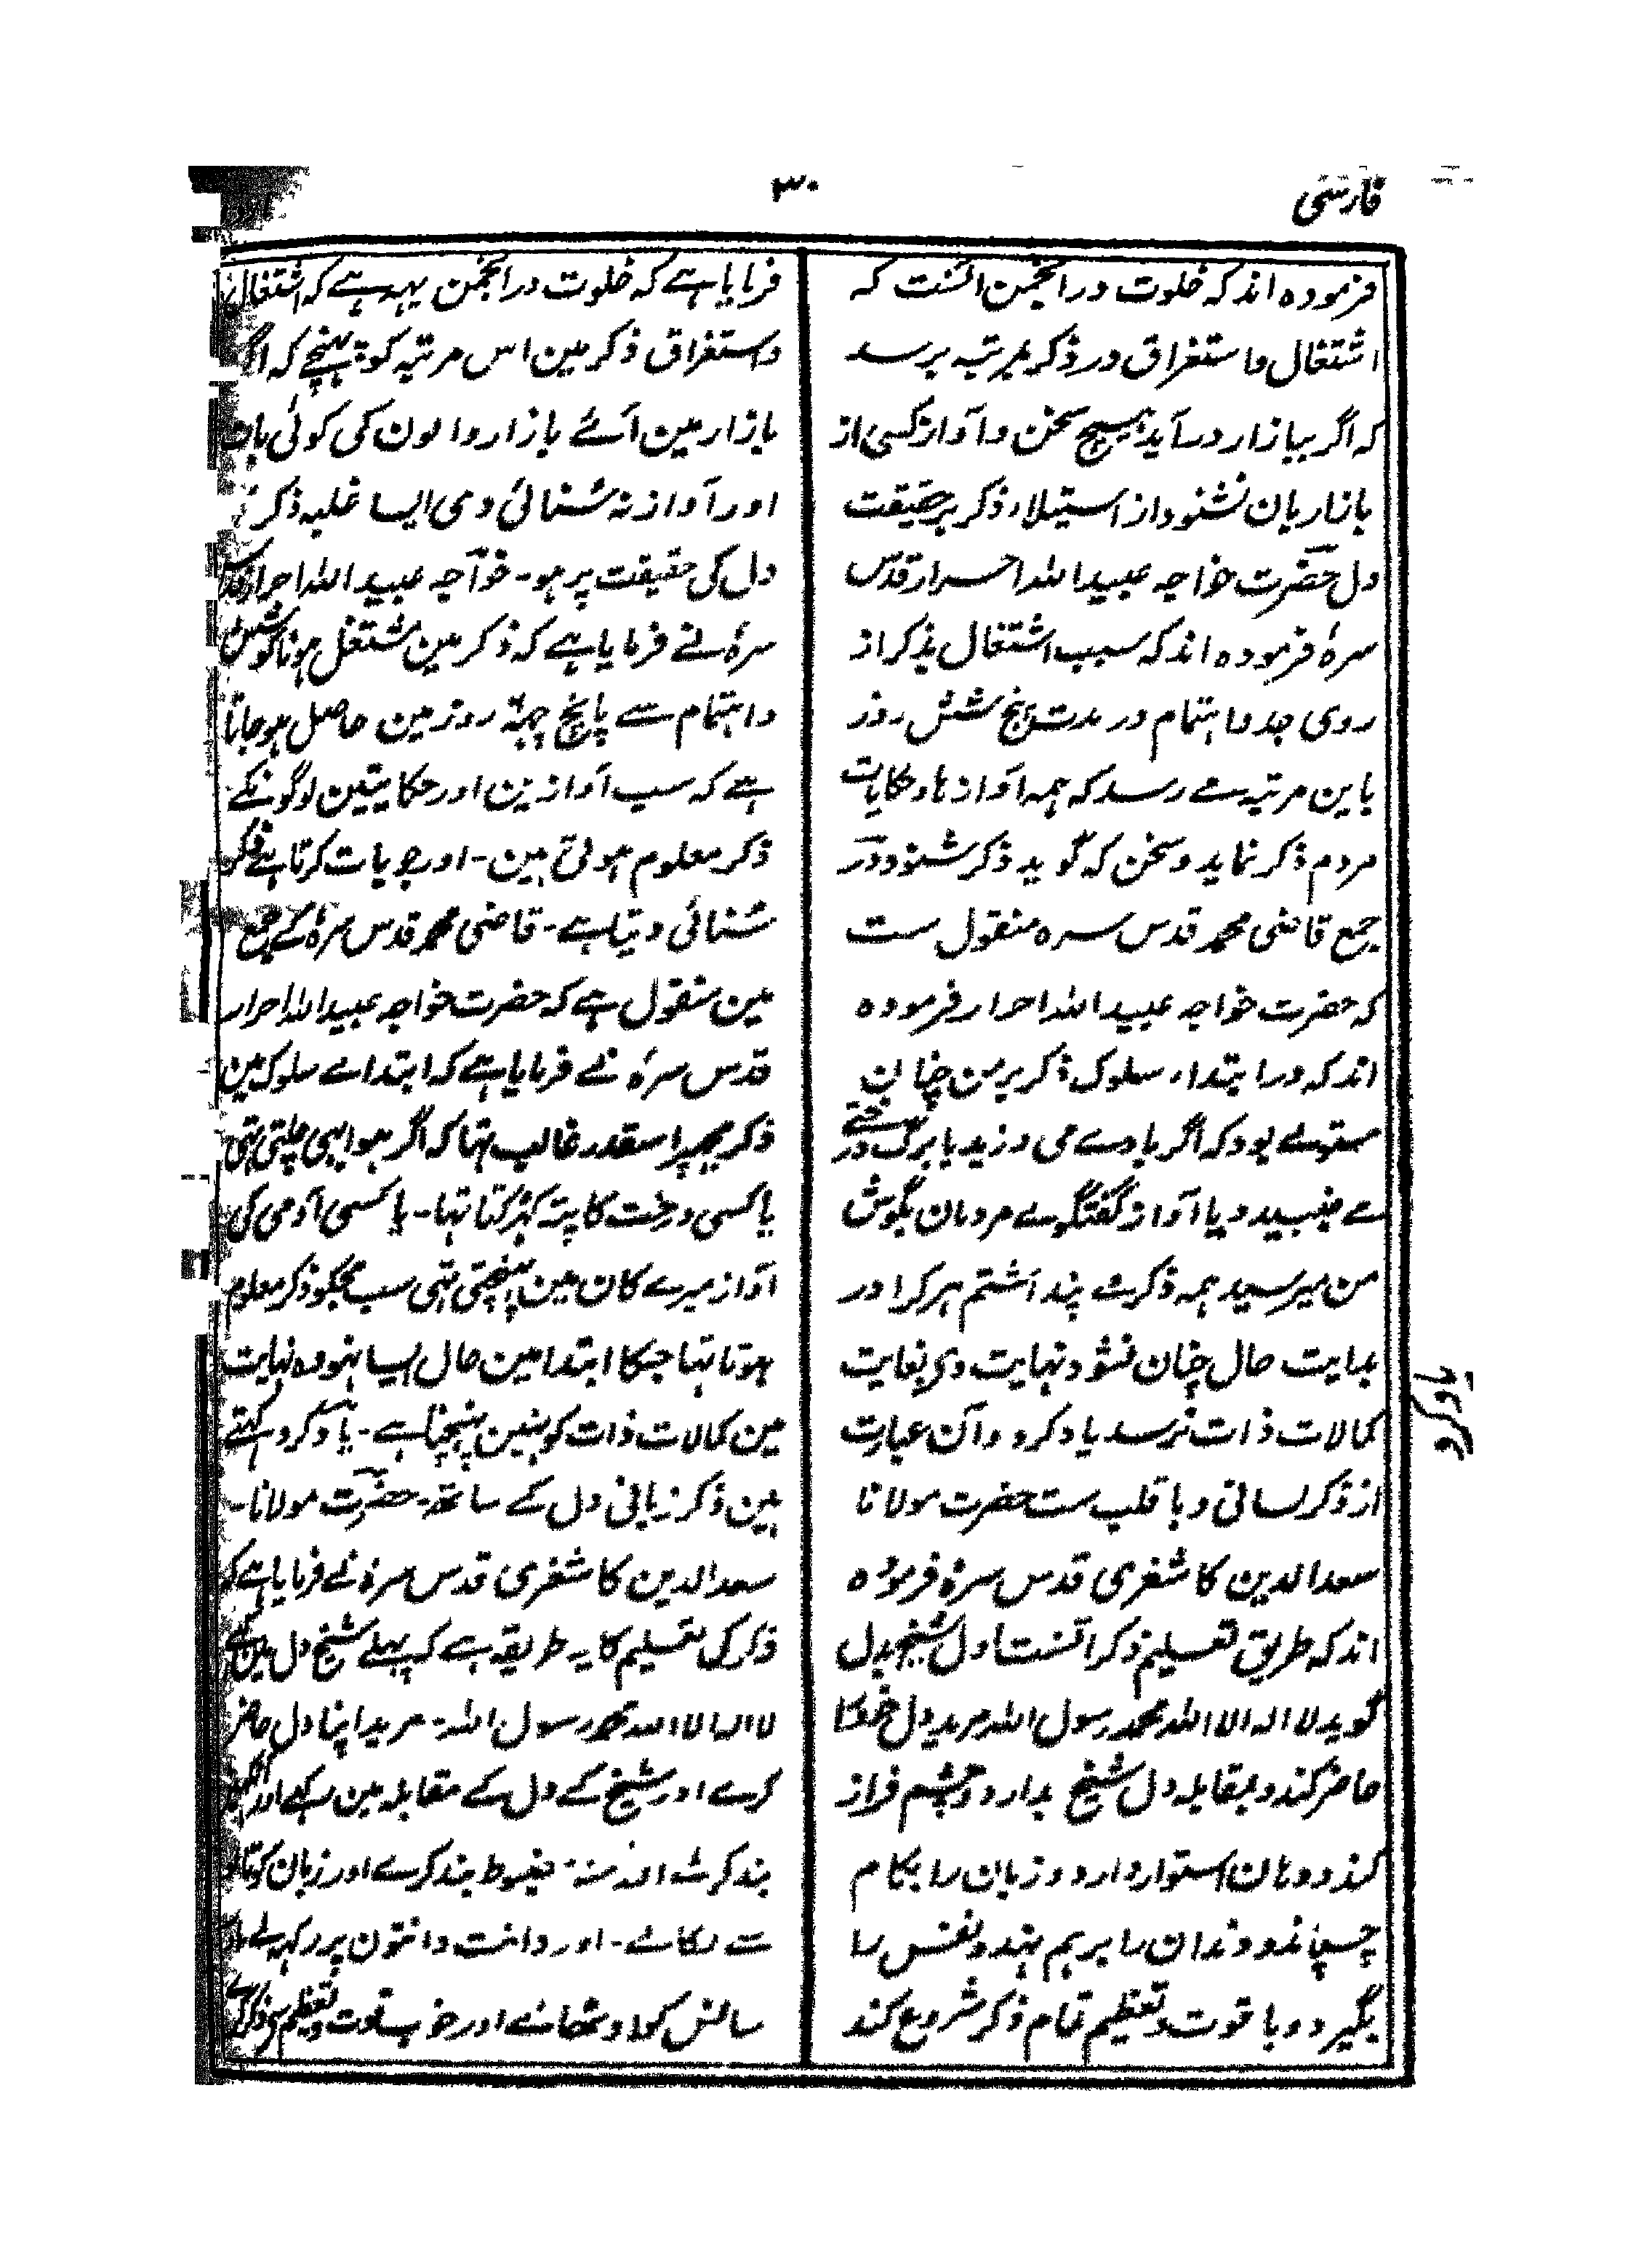 فارسی
۳۰
فرموده اند که خلوت در انجمن انست که
اشتغال و استغراق در ذکر بمرتبه برسد
که اگر ببازار در آید هیچ سخن و آواز کسی از
بازاریان نشنود از استیلاء ذکر بر حقیقت
دل حضرت خواجه عبیدالله احرار قدس
سرهٗ فرموده اند که سبب اشتغال بذکر از
روی جد و اهتمام در مدت پنج شش روز
باین مرتبه مے رسد که همه آواز ها و حکایات
مردم ذکر نماید و سخن که گوید ذکر شنود و در
جمع قاضی محمد قدس سره منقول ست
که حضرت خواجه عبیدالله احرار فرموده
اند که در ابتداء سلوک ذکر بر من چنان
مستولے بود که اگر بادے می وزید یا برگ درختے
مے جنبید و یا آواز گفتگوے مردمان بگوش
من میرسید همه ذکر مے پنداشتم هر کرا در
بدایت حال چنان نشود نهایت وی بغایت
کمالات ذات نرسد یاد کرد و آن عبارت
از ذکر لسانی و با قلب ست حضرت مولانا
سعدالدین کاشغری قدس سرهٗ فرموده
اند که طریق تعلیم ذکر آنست اول شیخ بدل
گوید لا اله الا الله محمد رسول الله مرید دل خود را
حاضر کند و بمقابله دل شیخ بدارد و چشم فراز
کند و دهان استوار دارد و زبان را بکام
چسپاند و دندان را بر هم نهد و نفس را
بگیرد و با قوت و تعظیم تمام ذکر شروع کند
یاد کرد
فرمایا ہے کہ خلوت در انجمن یہہ ہے کہ اشتغال
و استغراق ذکر مین اس مرتبہ کو پہنچے کہ اگر
بازار مین آئے بازار والون کی کوئی بات
اور آواز نہ سُنائی دی ایسا غلبہ ذکر
دل کی حقیقت پر ہو۔ خواجہ عبیداللہ احرار قدس
سرہٗ نے فرمایا ہے کہ ذکر مین مشتغل ہونا کوشش
و اہتمام سے پانچ چہہ روز مین حاصل ہو جاتا
ہے کہ سب آوازین اور حکایتین لوگونکے
ذکر معلوم ہوتی ہین۔ اور جو بات کرتا ہے ذکر
سُنائی دیتا ہے۔ قاضی محمد قدس سرہٗ کے جمع
مین منقول ہے کہ حضرت خواجہ عبیداللہ احرار
قدس سرہٗ نے فرمایا ہے کہ ابتداے سلوک مین
ذکر مجہپر اسقدر غالب تہا کہ اگر ہوا بہی چلتی تہی
یا کسی درخت کا پتہ کہڑکتا تہا۔ یا کسی آدمی کی
آواز میرے کان مین پہنچتی تہی سب مجکو ذکر معلوم
ہوتا تہا جسکا ابتدا مین حال ایسا نہو وہ نہایت
مین کمالات ذات کو نہین پہنچتا ہے۔ یاد کرد کہتے
ہین ذکر زبانی دل کے ساتھ۔ حضرت مولانا۔
سعدالدین کاشغری قدس سرہٗ نے فرمایا ہے کہ
ذکر کی تعلیم کا یہ طریقہ ہے کہ پہلے شیخ دل مین کہے
لا الہ الا اللہ محمد رسول اللہ۔ مرید اپنا دل حاضر
کرے اور شیخ کے دل کے مقابلہ مین رکہے اور آنکہین
بند کرے اور منہ مضبوط بند کرے اور زبان کو تالو
سے لگائے۔ اور دانت دانتون پر رکہے
سانس کو اور خوب قوت و تعظیم سے ذکر